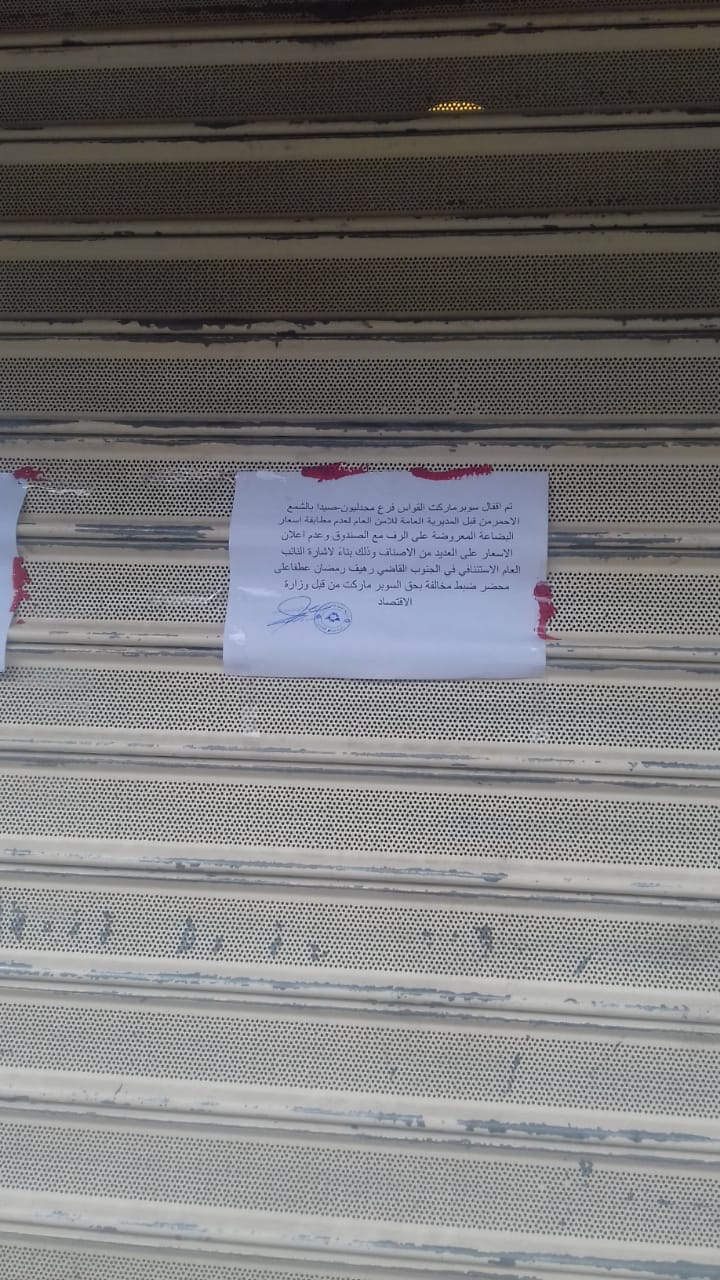 تم اقفال سوبرماركت القواس فرع مجدليون-صيدا بالشمع
الاحمرمن قبل المديرية العامة للامن العام لعدم مطابقة اسعار
البضاعة المعروضة على الرف مع الصندوق وعدم اعلان
الاسعار على العديد من الاصناف وذلك بناءً لاشارة النائب
العام الاستئنافي في الجنوب القاضي رهيف رمضان عطفاعلى
محضر ضبط مخالفة بحق السوبر ماركت من قبل وزارة
الاقتصاد